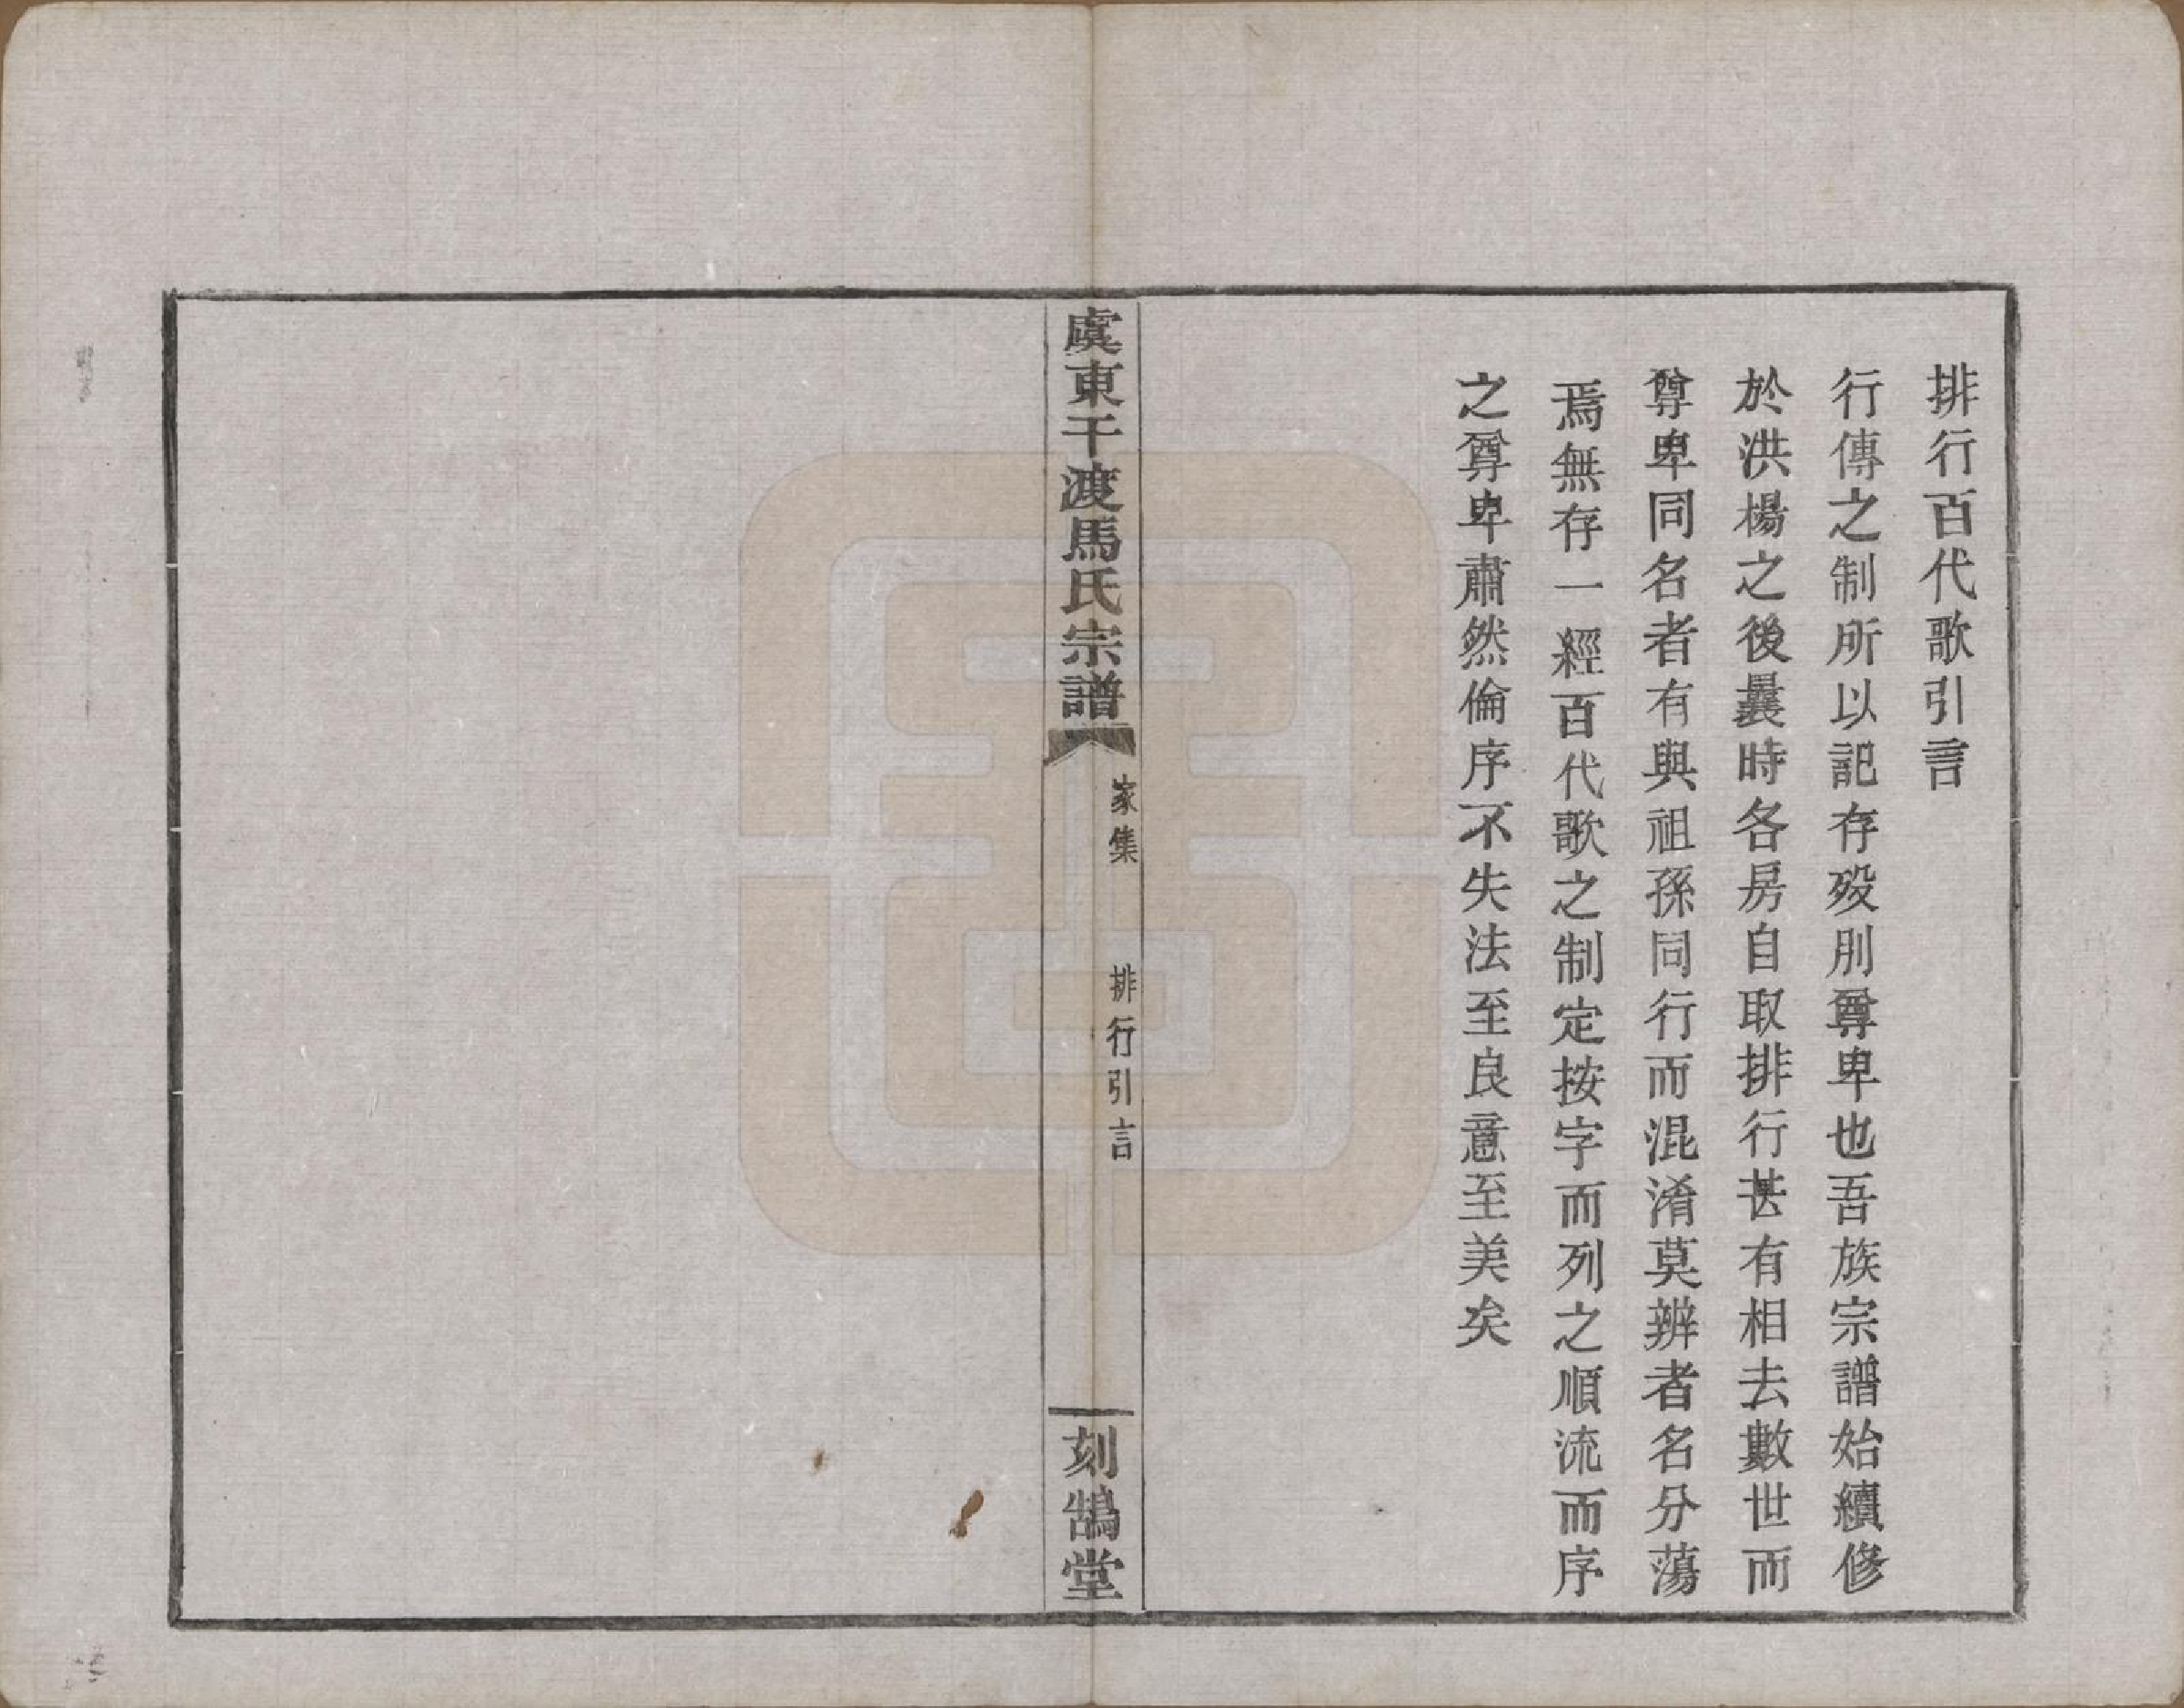 排行百代歌引言
行傳之制所以記存歿刖尊卑也吾族宗譜始續修
於洪楊之後曩時各房自取排行甚有相去數世而
尊卑同名者有與祖孫同行而混淆莫辨者名分蕩
焉無存一經百代歌之制定按字而列之順流而序
之尊卑肅然倫序不失法至良意至美矣
虞東干渡馬氏宗譜
家集
排行引言
刻鵠堂